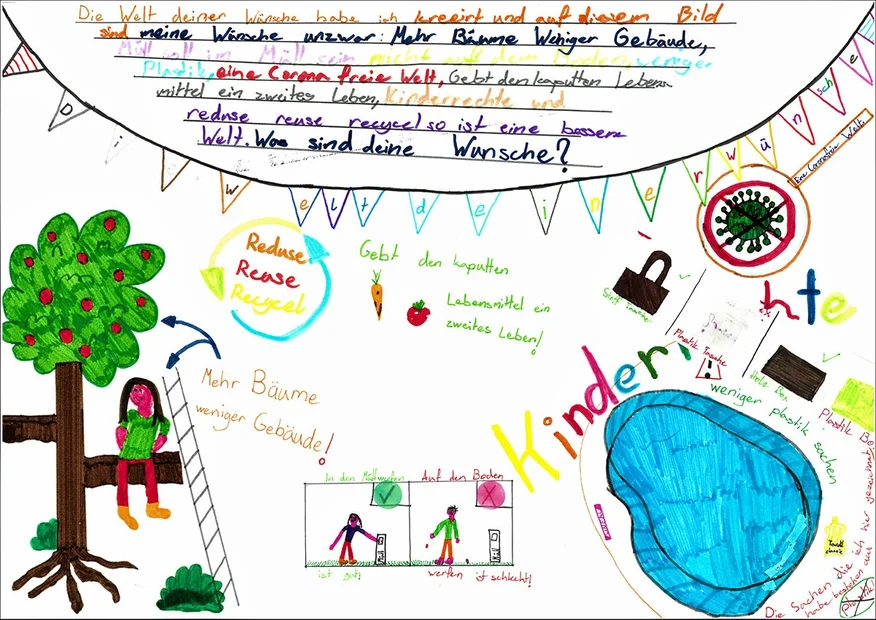 Die Welt deiner Wünsche habe ich kreeirt und auf diesem Bild
sind meine Wünsche unzwar: Mehr Bäume Weniger Gebäude,
Müll soll im Müll sein nicht auf dem Boden, weniger
Plastik, eine Corona freie Welt, Gebt den kaputten Lebens-
mittel ein zweites Leben, Kinderrechte und
reduse reuse recycel so ist eine bessere
Welt. Was sind deine Wünsche?
Die Welt deiner Wünsche
Eine Coronafreie Welt
Reduse
Reuse
Recycel
Gebt den kaputten
Lebensmittel ein
zweites Leben!
Mehr Bäume
weniger Gebäude!
Kinder
hte
Stoff Tasche
Plastik Tasche
Holz Box
Plastik Bo
weniger plastik sachen
In den Mülleimer
Auf den Boden
Müll
Müll
ist gut!
werfen ist schlecht!
Die Sachen die ich hier gezeichnet
habe bestehen aus
Plastik!